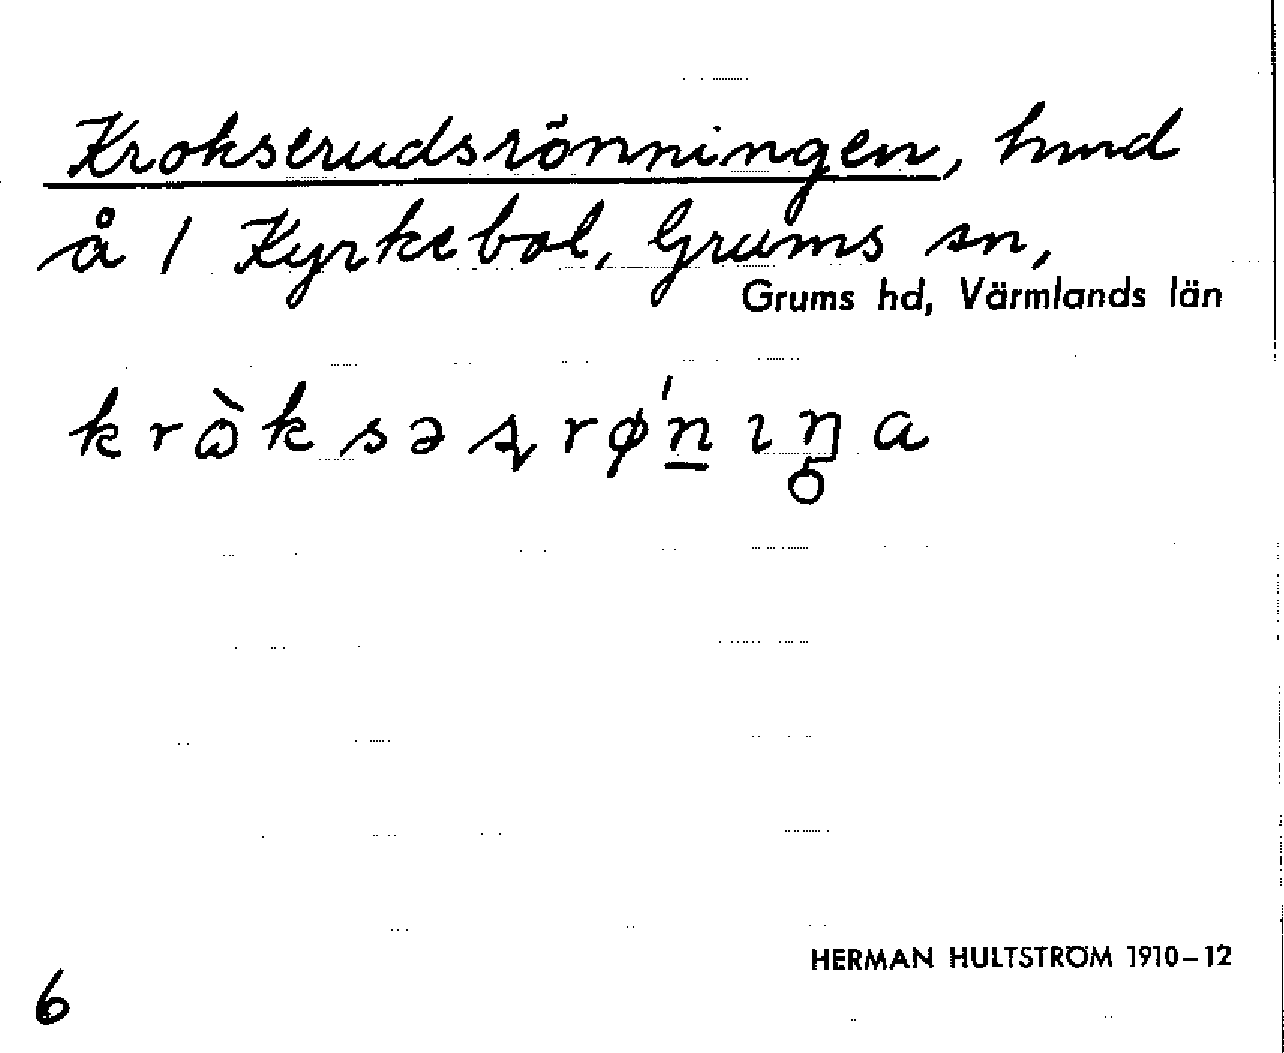 Krokserudsrönningen, hmd
å 1 Kyrkebol, Grums sn,
Grums hd, Värmlands län
HERMAN HULTSTRÖM 1910–12
6